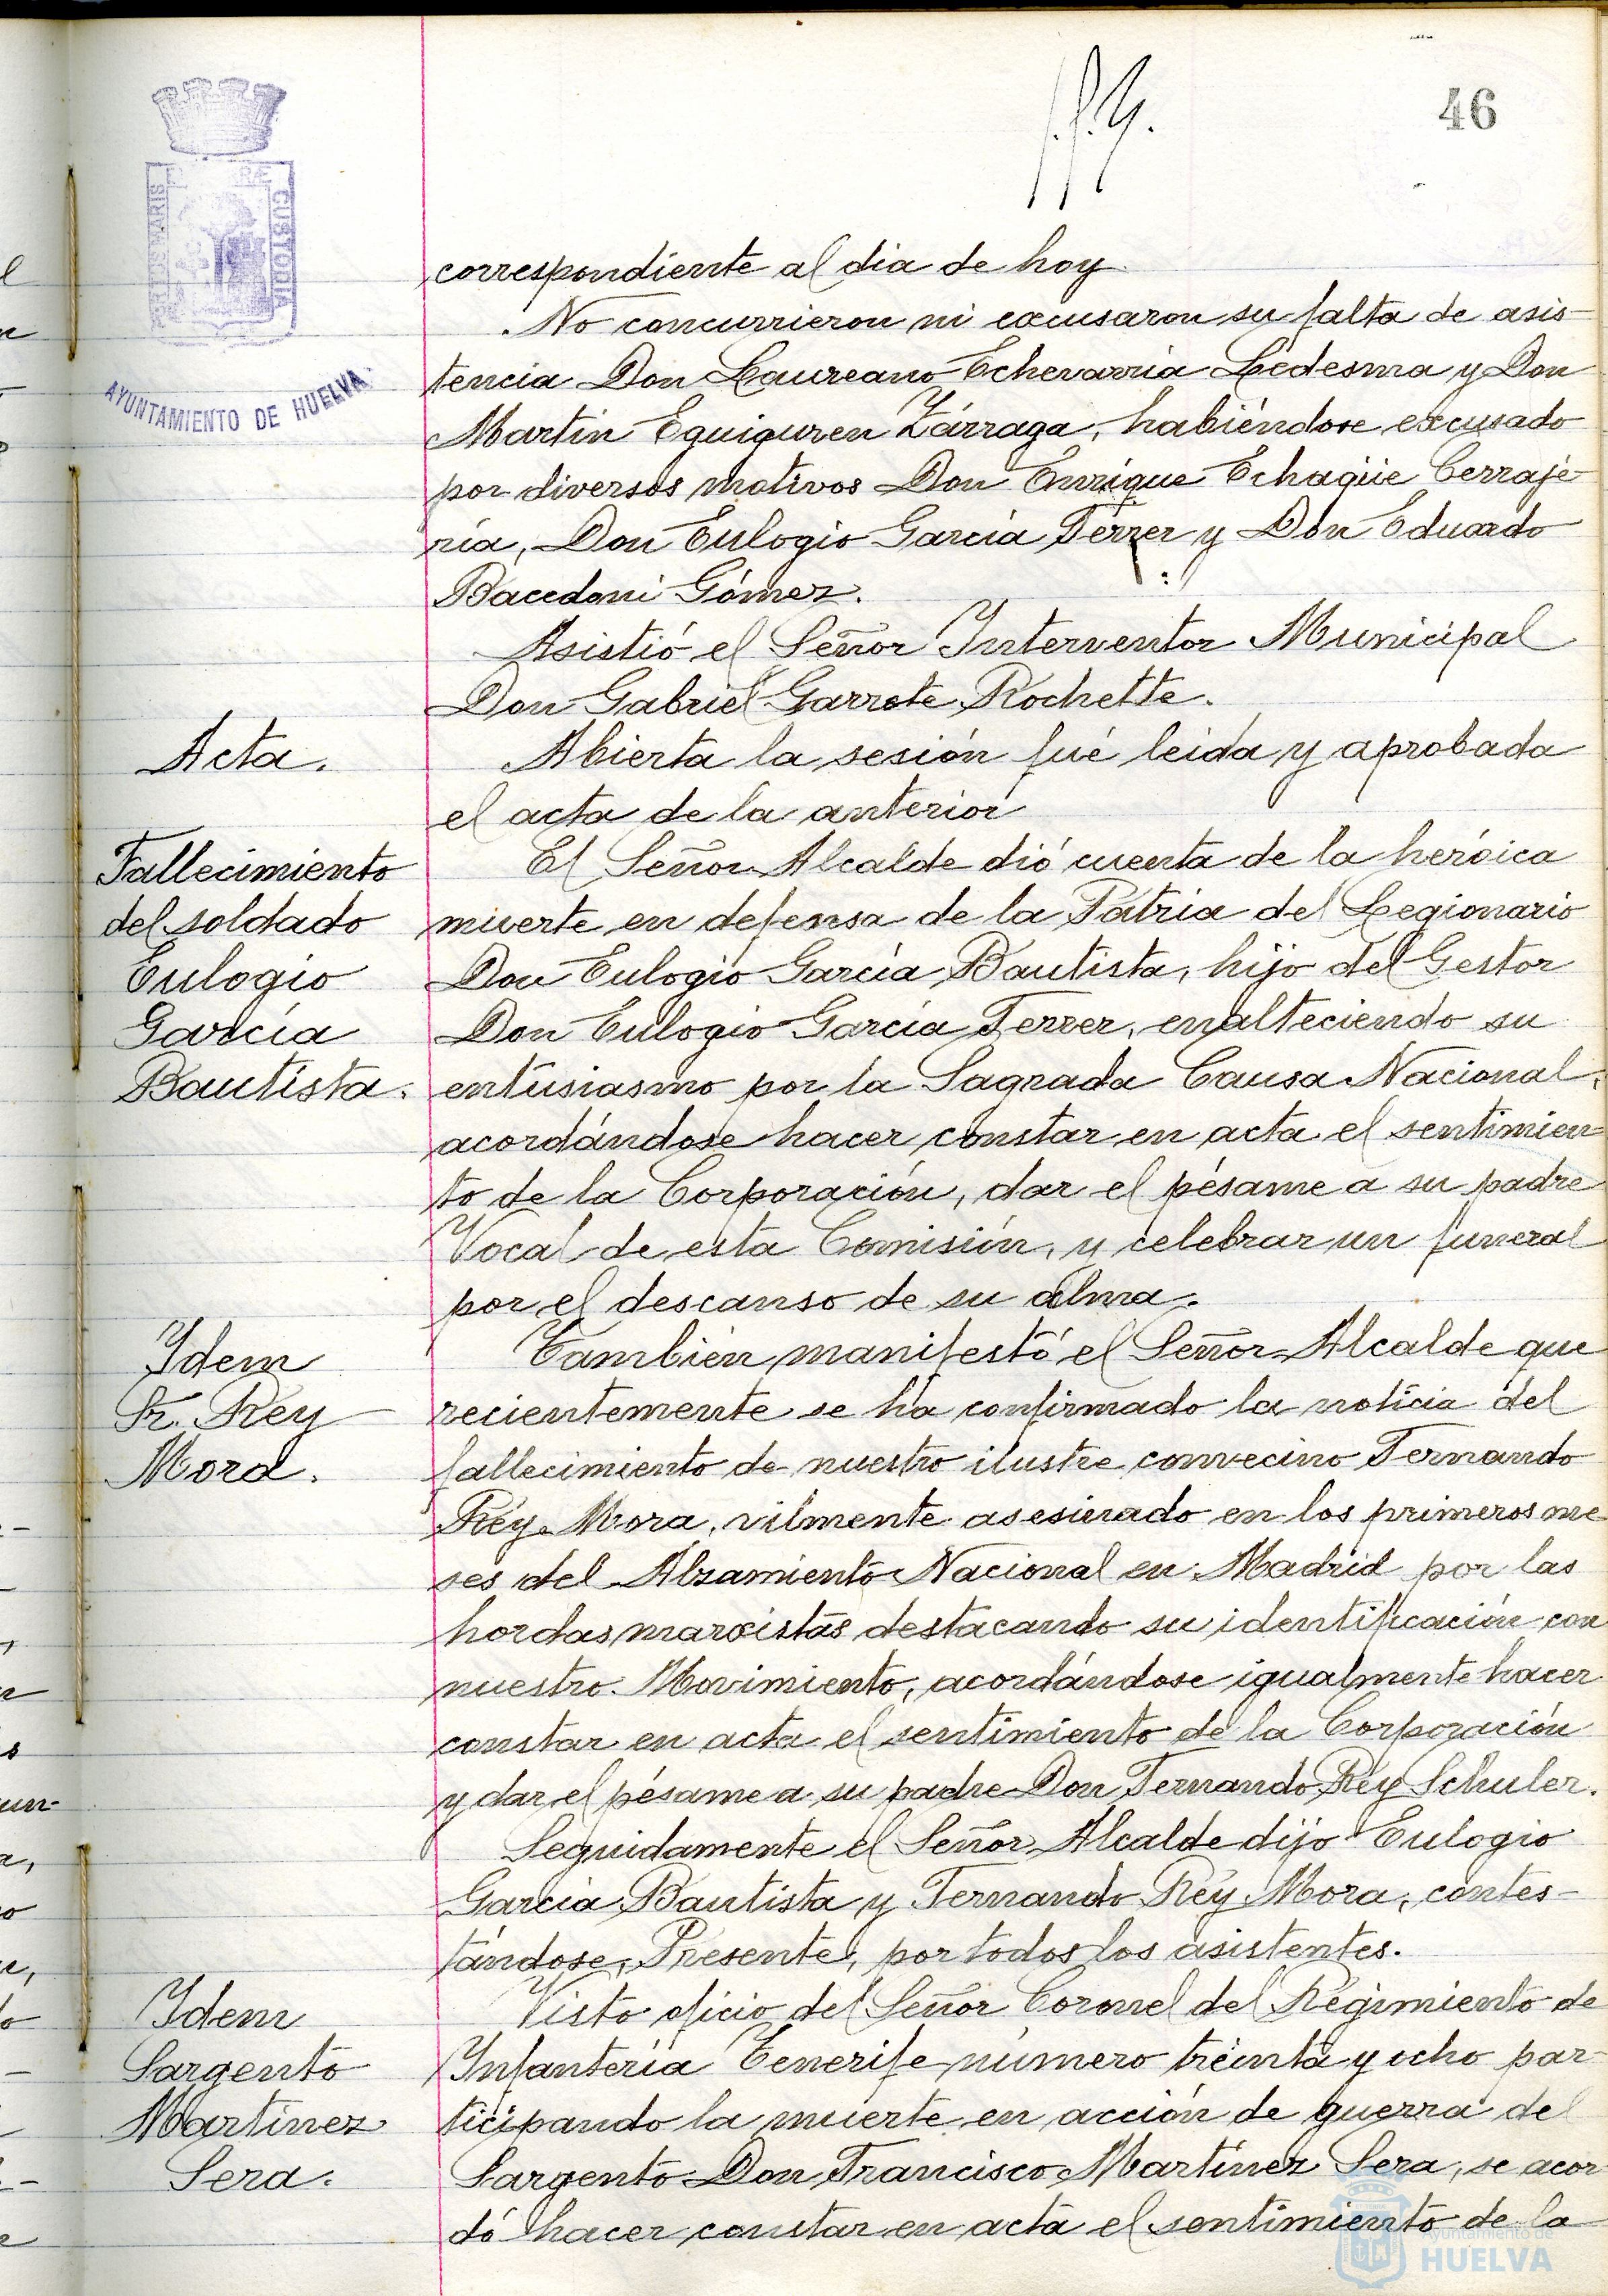 46
PORTUS MARIS ET TERRÆ CUSTODIA
AYUNTAMIENTO DE HUELVA
correspondiente al dia de hoy
No concurrieron ni excusaron su falta de asis-
tencia Don Laureano Echevarria Ledesma y Don
Martin Eguiguren Zárraga, habiéndose excusado
por diversos motivos Don Enrique Echagüe Cerraje-
ria, Don Eulogio Garcia Ferrer y Don Eduardo
Bacedoni Gómez.
Asistió el Señor Interventor Municipal
Don Gabriel Garrote Rochette.
Acta.
Abierta la sesión fué leida y aprobada
el acta de la anterior
Fallecimiento
del soldado
Eulogio
García
Bautista.
El Señor Alcalde dió cuenta de la heróica
muerte en defensa de la Patria del Legionario
Don Eulogio García Bautista, hijo del Gestor
Don Eulogio García Ferrer, enalteciendo su
entusiasmo por la Sagrada Causa Nacional,
acordándose hacer constar en acta el sentimien-
to de la Corporación, dar el pésame a su padre
Vocal de esta Comisión, y celebrar un funeral
por el descanso de su alma.
Idem
Sr. Rey
Mora.
También manifestó el Señor Alcalde que
recientemente se ha confirmado la noticia del
fallecimiento de nuestro ilustre convecino Fernando
Rey Mora, vilmente asesinado en los primeros me-
ses del Alzamiento Nacional en Madrid por las
hordas marxistas destacando su identificación con
nuestro Movimiento, acordándose igualmente hacer
constar en acta el sentimiento de la Corporación
y dar el pésame a su padre Don Fernando Rey Schuler.
Seguidamente el Señor Alcalde dijo Eulogio
García Bautista y Fernando Rey Mora, contes-
tándose, Presente, por todos los asistentes.
Idem
Sargento
Martinez
Sera.
Visto oficio del Señor Coronel del Regimiento de
Infantería Tenerife número treinta y ocho par-
ticipando la muerte en acción de guerra del
Sargento Don Francisco Martínez Sera, se acor-
dó hacer constar en acta el sentimiento de la
Ayuntamiento de
HUELVA